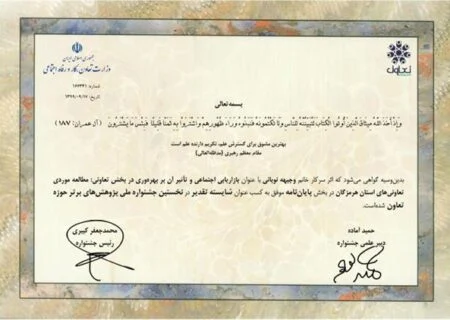 جمهوری اسلامی ایران
وزارت تعاون، کار و رفاه اجتماعی
شماره: ۱۶۶۳۴۱
تاریخ: ۱۳۹۹/۰۹/۱۷
تعاون
بسمه تعالی
وَإِذْ أَخَذَ اللَّهُ مِيثَاقَ الَّذِينَ أُوتُوا الْكِتَابَ لَتُبَيِّنُنَّهُ لِلنَّاسِ وَلَا تَكْتُمُونَهُ فَنَبَذُوهُ وَرَاءَ ظُهُورِهِمْ وَاشْتَرَوْا بِهِ ثَمَنًا قَلِيلًا فَبِئْسَ مَا يَشْتَرُونَ (آل عمران: ۱۸۷)
بهترین مشوق برای گسترش علم، تکریم دارنده علم است
مقام معظم رهبری (مدظله‌العالی)
بدین‌وسیله گواهی می‌شود که اثر سرکار خانم وجیهه توبانی با عنوان بازاریابی اجتماعی و تأثیر آن بر بهره‌وری در بخش تعاونی: مطالعه موردی
تعاونی‌های استان هرمزگان در بخش پایان‌نامه موفق به کسب عنوان شایسته تقدیر در نخستین جشنواره ملی پژوهش‌های برتر حوزه
تعاون شده‌است.
حمید آماده
دبیر علمی جشنواره
محمدجعفر کبیری
رئیس جشنواره